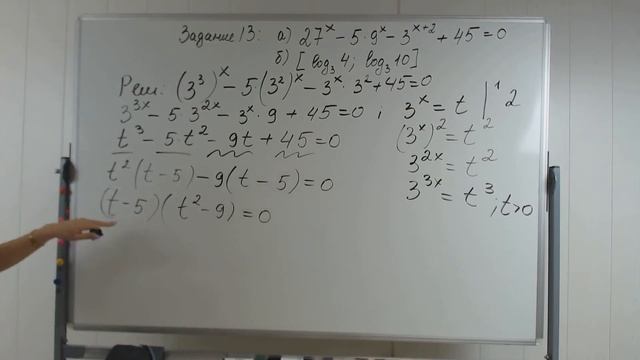 Задание 13: а) 27^x - 5 · 9^x - 3^{x+2} + 45 = 0
б) [log_3 4; log_3 10]
Реш: (3^3)^x - 5·(3^2)^x - 3^x · 3^2 + 45 = 0
3^{3x} - 5·3^{2x} - 3^x · 9 + 45 = 0 ; 3^x = t |^1 2
t^3 - 5·t^2 - 9t + 45 = 0
(3^x)^2 = t^2
t^2(t - 5) - 9(t - 5) = 0
3^{2x} = t^2
(t - 5)(t^2 - 9) = 0
3^{3x} = t^3; t>0